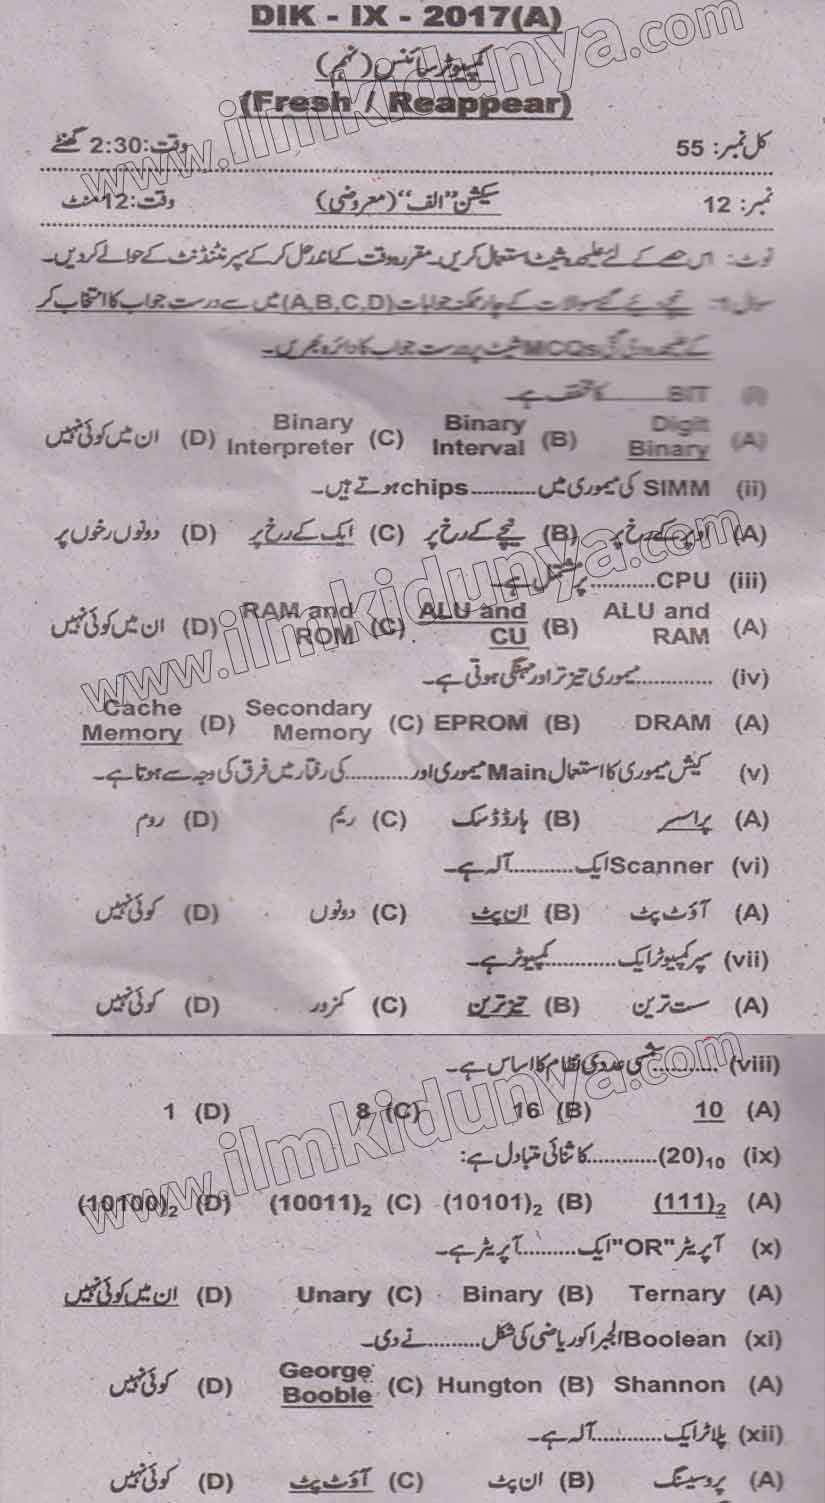 DIK - IX - 2017(A)
کمپیوٹر سائنس (نہم)
(Fresh / Reappear)
کل نمبر: 55 وقت: 2:30 گھنٹے
نمبر: 12 سیکشن "الف" (معروضی) وقت: 12 منٹ
نوٹ: اس حصے کے لئے علیحدہ شیٹ استعمال کریں۔ مقررہ وقت کے اندر حل کر کے سپرنٹنڈنٹ کے حوالے کر دیں۔
سوال 1: نیچے دیئے گئے سوالات کے چار ممکنہ جوابات (A,B,C,D) میں سے درست جواب کا انتخاب کر
کے علیحدہ دی گئی MCQs شیٹ پر درست جواب کا دائرہ بھریں۔
(i) BIT ........... کا مخفف ہے۔
(A) Digit Binary (B) Binary Interval (C) Binary Interpreter (D) ان میں کوئی نہیں
(ii) SIMM کی میموری میں ........... chips ہوتے ہیں۔
(A) اوپر کے رخ پر (B) نیچے کے رخ پر (C) ایک کے رخ پر (D) دونوں رخوں پر
(iii) CPU ........... پر مشتمل ہے۔
(A) ALU and RAM (B) ALU and CU (C) RAM and ROM (D) ان میں کوئی نہیں
(iv) ............. میموری تیز تر اور مہنگی ہوتی ہے۔
(A) DRAM (B) EPROM (C) Secondary Memory (D) Cache Memory
(v) کیش میموری کا استعمال Main میموری اور ........... کی رفتار میں فرق کی وجہ سے ہوتا ہے۔
(A) پراسسر (B) ہارڈ ڈسک (C) ریم (D) روم
(vi) Scanner ایک ........... آلہ ہے۔
(A) آؤٹ پٹ (B) ان پٹ (C) دونوں (D) کوئی نہیں
(vii) سپر کمپیوٹر ایک ........... کمپیوٹر ہے۔
(A) سست ترین (B) تیز ترین (C) کمزور (D) کوئی نہیں
(viii) ........... شمسی عددی نظام کا اساس ہے۔
(A) 10 (B) 16 (C) 8 (D) 1
(ix) (20)₁₀ ............ کا ثنائی متبادل ہے:
(A) (111)₂ (B) (10101)₂ (C) (10011)₂ (D) (10100)₂
(x) آپریٹر "OR" ایک ......... آپریٹر ہے۔
(A) Ternary (B) Binary (C) Unary (D) ان میں کوئی نہیں
(xi) Boolean الجبرا کو ریاضی کی شکل .......... نے دی۔
(A) Shannon (B) Hungton (C) George Booble (D) کوئی نہیں
(xii) پلاٹر ایک ............. آلہ ہے۔
(A) پروسیسنگ (B) ان پٹ (C) آؤٹ پٹ (D) کوئی نہیں
www.ilmkidunya.com
www.ilmkidunya.com
www.ilmkidunya.com